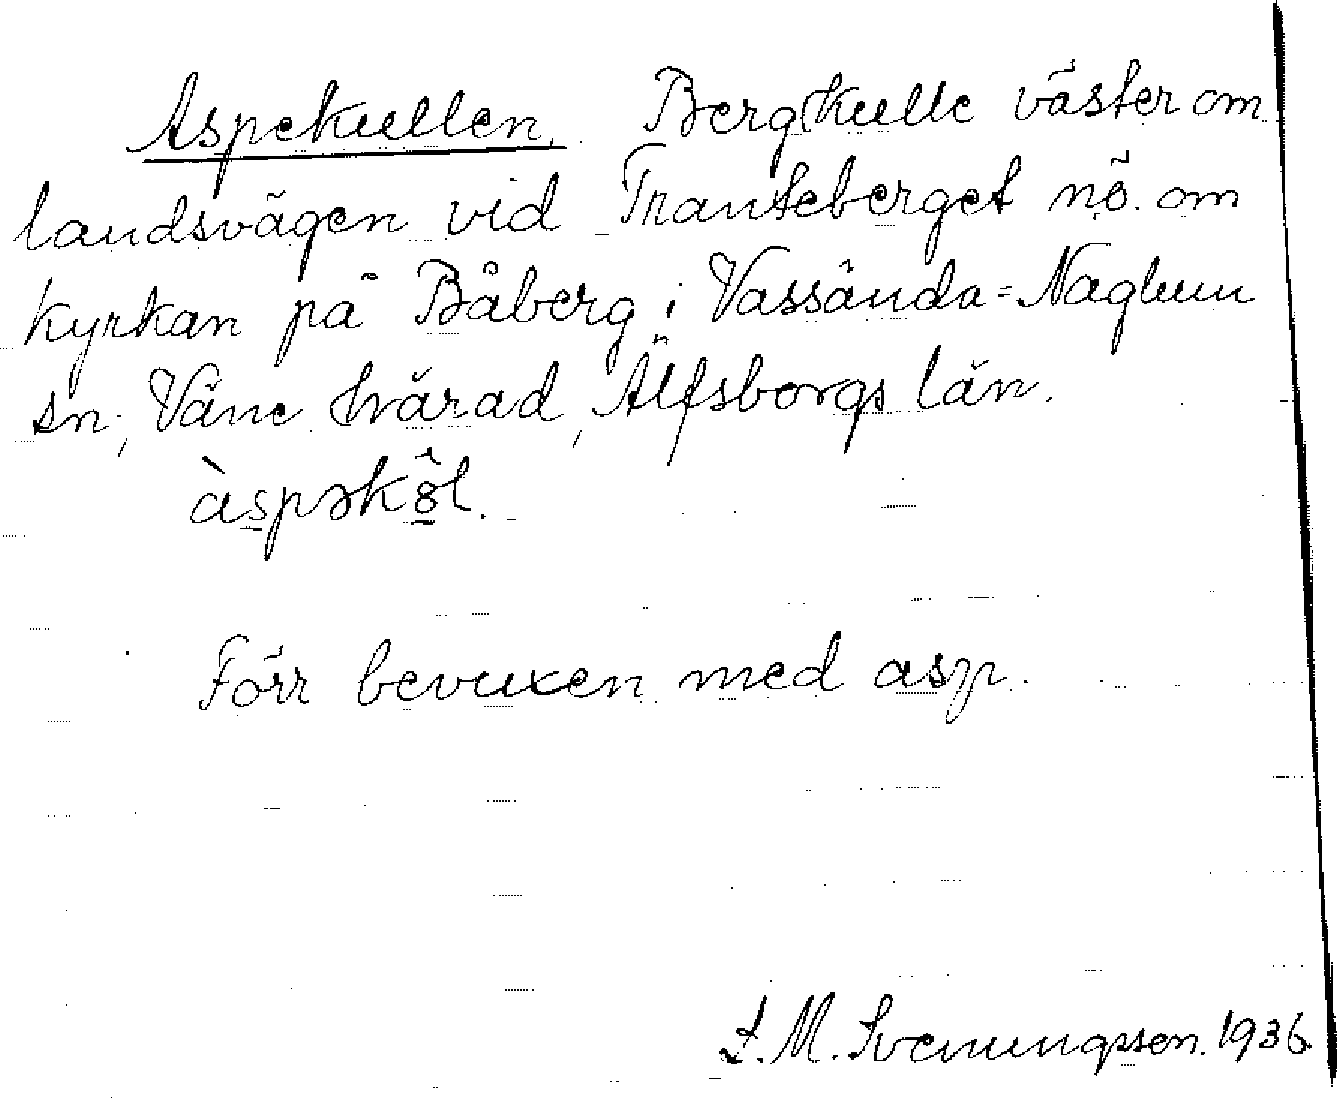 Aspekullen. Bergkulle väster om
landsvägen vid Tranteberget nö. om
kyrkan på Båberg i Vassända-Naglum
sn, Väne härad, Älfsborgs län.
àspəkô̱l.
Förr bevuxen med asp.
Svenungsson. 1936.